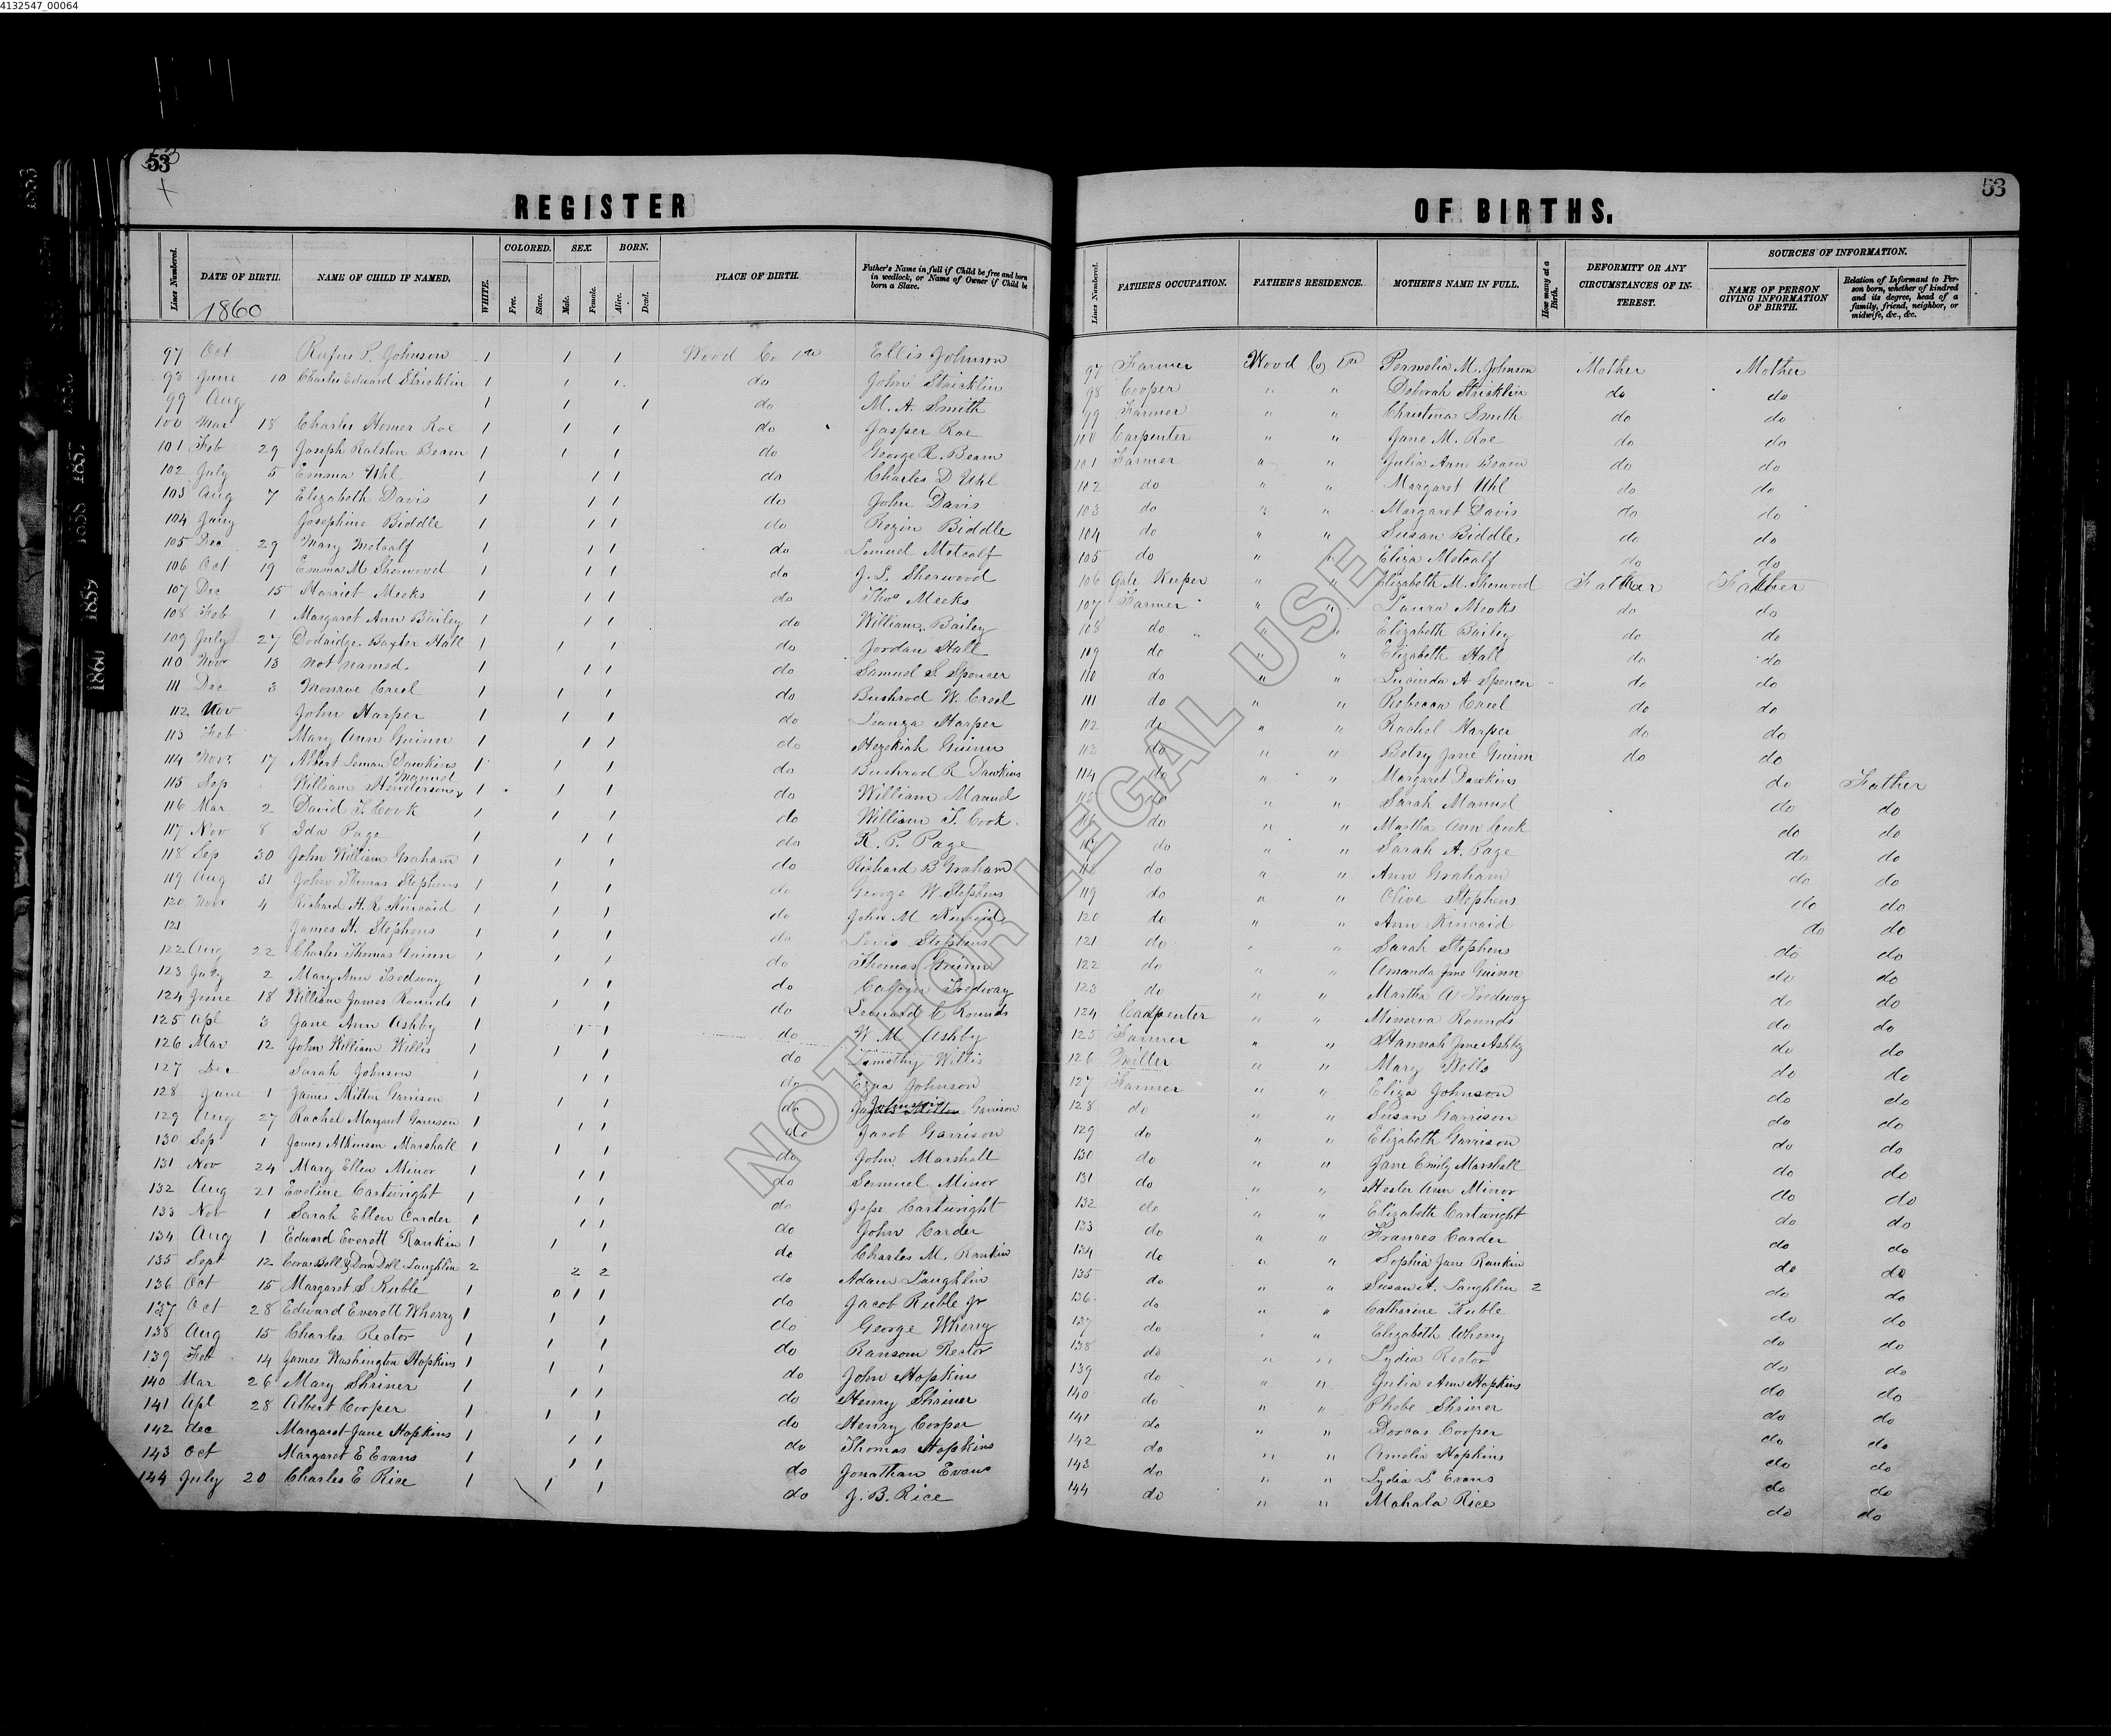 4132547_00064
53
53
REGISTER
OF BIRTHS.
Lines Numbered.
DATE OF BIRTH.
1860
NAME OF CHILD IF NAMED.
WHITE.
COLORED.
Free.
Slave.
SEX.
Male.
Female.
BORN.
Alive.
Dead.
PLACE OF BIRTH.
Father's Name in full if Child be free and born in wedlock, or Name of Owner if Child be born a Slave.
Lines Numbered.
FATHER'S OCCUPATION.
FATHER'S RESIDENCE.
MOTHER'S NAME IN FULL.
How many at a Birth.
DEFORMITY OR ANY CIRCUMSTANCES OF INTEREST.
SOURCES OF INFORMATION.
NAME OF PERSON GIVING INFORMATION OF BIRTH.
Relation of Informant to Person born, whether of kindred and its degree, head of a family, friend, neighbor, or midwife, &c., &c.
97 Oct Rufus P. Johnson 1 1 1 Wood Co Va Ellis Johnson
98 June 10 Charles Edward Stricklin 1 1 1 do John Stricklin
99 Aug 1 1 1 do M. A. Smith
100 Mar 18 Charles Homer Roe 1 1 1 do Jasper Roe
101 Feb 29 Joseph Ralston Beam 1 1 1 do George R. Beam
102 July 5 Emma Uhl 1 1 1 do Charles D Uhl
103 Aug 7 Elizabeth Davis 1 1 1 do John Davis
104 Jany Josephine Biddle 1 1 1 do Rezin Biddle
105 Dec 29 Mary Metcalf 1 1 1 do Lemuel Metcalf
106 Oct 19 Emma M Sherwood 1 1 1 do J. L. Sherwood
107 Dec 15 Harriet Meeks 1 1 1 do Thos Meeks
108 Feb 1 Margaret Ann Bailey 1 1 1 do William Bailey
109 July 27 Dodridge Baxter Hall 1 1 1 do Jordan Hall
110 Nov 13 Not named 1 1 1 do Samuel S. Spencer
111 Dec 3 Monroe Creel 1 1 1 do Bushrod W. Creel
112 Nov John Harper 1 1 1 do Leanza Harper
113 Feb Mary Ann Guinn 1 1 1 do Hezekiah Guinn
114 Nov 17 Albert Leman Dawkins 1 1 1 do Bushrod R Dawkins
115 Sep William Henderson Manuel 1 1 1 do William Manuel
116 Mar 2 David T. Cook 1 1 1 do William T. Cook
117 Nov 8 Ida Page 1 1 1 do R. P. Page
118 Sep 30 John William Graham 1 1 1 do Richard B Graham
119 Aug 31 John Thomas Stephens 1 1 1 do George W Stephens
120 Nov 4 Richard H. R. Kincaid 1 1 1 do John M Kincaid
121 James H. Stephens 1 1 1 do Levis Stephens
122 Aug 22 Charles Thomas Guinn 1 1 1 do Thomas Guinn
123 July 2 Mary Ann Tredway 1 1 1 do Calvin Tredway
124 June 18 William James Rounds 1 1 1 do Leonard C Rounds
125 Apl 3 Jane Ann Ashby 1 1 1 do W M Ashby
126 Mar 12 John William Willis 1 1 1 do Timothy Willis
127 Dec Sarah Johnson 1 1 1 do Ezra Johnson
128 June 1 James Milton Garrison 1 1 1 do Garrison
129 Aug 27 Rachel Margaret Garrison 1 1 1 do Jacob Garrison
130 Sep 1 James Atkinson Marshall 1 1 1 do John Marshall
131 Nov 24 Mary Ellen Minor 1 1 1 do Samuel Minor
132 Aug 21 Eveline Cartwright 1 1 1 do Jesse Cartwright
133 Nov 1 Sarah Ellen Carder 1 1 1 do John Carder
134 Aug 1 Edward Everett Rankin 1 1 1 do Charles M. Rankin
135 Sept 12 Cora Bell & Dora Dell Laughlin 2 2 2 do Adam Laughlin
136 Oct 15 Margaret S Ruble 1 0 1 1 do Jacob Ruble Jr
137 Oct 28 Edward Everett Wherry 1 1 1 do George Wherry
138 Aug 15 Charles Rector 1 1 1 do Ransom Rector
139 Feb 14 James Washington Hopkins 1 1 1 do John Hopkins
140 Mar 26 Mary Shriner 1 1 1 do Henry Shriner
141 Apl 28 Albert Cooper 1 1 1 do Henry Cooper
142 dec Margaret Jane Hopkins 1 1 1 do Thomas Hopkins
143 Oct Margaret E Evans 1 1 1 do Jonathan Evans
144 July 20 Charles E Rice 1 1 1 do J. B. Rice
97 Farmer Wood Co Va Permelia M. Johnson Mother Mother
98 Cooper " " Deborah Stricklin do do
99 Farmer " " Christina Smith do do
100 Carpenter " " Jane M. Roe do do
101 Farmer " " Julia Ann Beam do do
102 do " " Margaret Uhl do do
103 do " " Margaret Davis do do
104 do " " Susan Biddle do do
105 do " " Eliza Metcalf do do
106 Gate Keeper " " Elizabeth M. Sherwood Father Father
107 Farmer " " Laura Meeks do do
108 do " " Elizabeth Bailey do do
109 do " " Elizabeth Hall do do
110 do " " Lucinda A Spencer do do
111 do " " Rebecca Creel do do
112 do " " Rachel Harper do do
113 do " " Betsy Jane Guinn do do
114 do " " Margaret Dawkins do Father
115 do " " Sarah Manuel do do
116 do " " Martha Ann Cook do do
117 do " " Sarah A. Page do do
118 do " " Ann Graham do do
119 do " " Olive Stephens do do
120 do " " Ann Kincaid do do
121 do " " Sarah Stephens do do
122 do " " Amanda Jane Guinn do do
123 do " " Martha A Tredway do do
124 Carpenter " " Minerva Rounds do do
125 Farmer " " Hannah Jane Ashby do do
126 " " Mary do do
127 Farmer " " Eliza Johnson do do
128 do " " Susan Garrison do do
129 do " " Elizabeth Garrison do do
130 do " " Jane Emily Marshall do do
131 do " " Hester Ann Minor do do
132 do " " Elizabeth Cartwright do do
133 do " " Frances Carder do do
134 do " " Sophia Jane Rankin do do
135 do " " Susan A. Laughlin 2 do do
136 do " " Catherine Ruble do do
137 do " " Elizabeth Wherry do do
138 do " " Lydia Rector do do
139 do " " Julia Ann Hopkins do do
140 do " " Phebe Shriner do do
141 do " " Dorcas Cooper do do
142 do " " Amelia Hopkins do do
143 do " " Lydia L Evans do do
144 do " " Mahala Rice do do
NOT FOR LEGAL USE
1857
1858
1859
1860